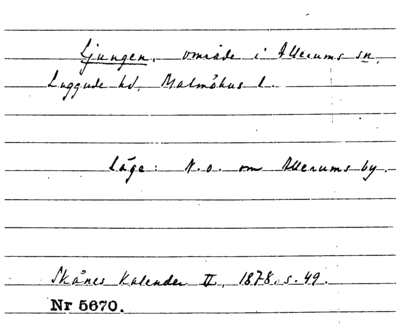 Ljungen, område i Allerums sn,
Luggude hd, Malmöhus l.
läge: N.o. om Allerums by.
Skånes Kalender II, 1878, s. 49.
Nr 5670.